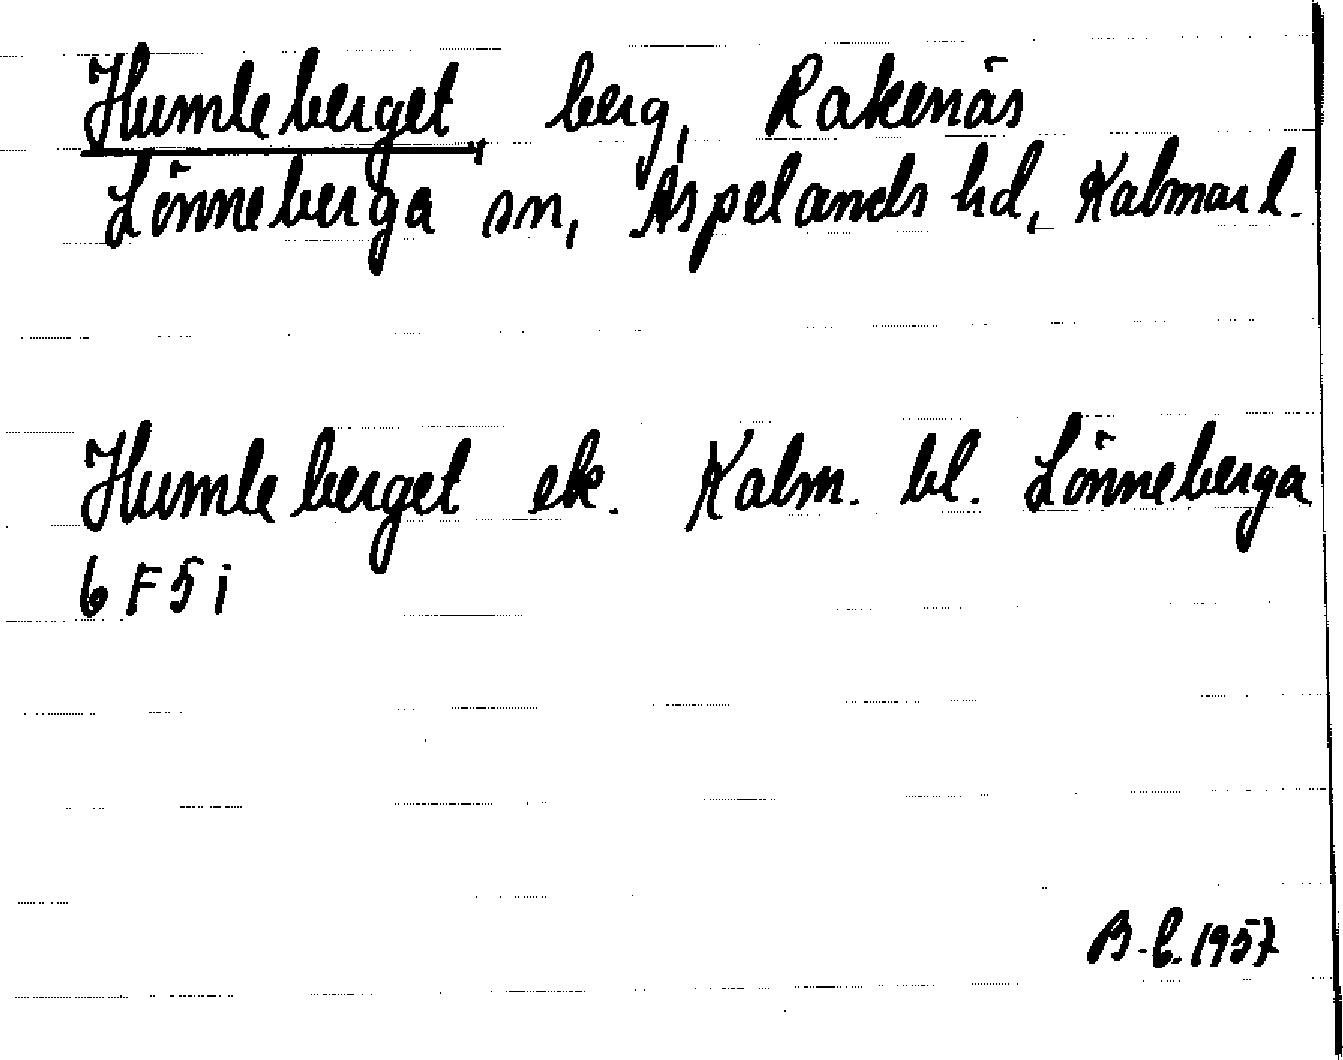 Humleberget, berg, Rakenäs
Lönneberga sn, Aspelands hd, Kalmar l.
Humleberget ek. Kalm. bl. Lönneberga
6F5i
B-b. 1957